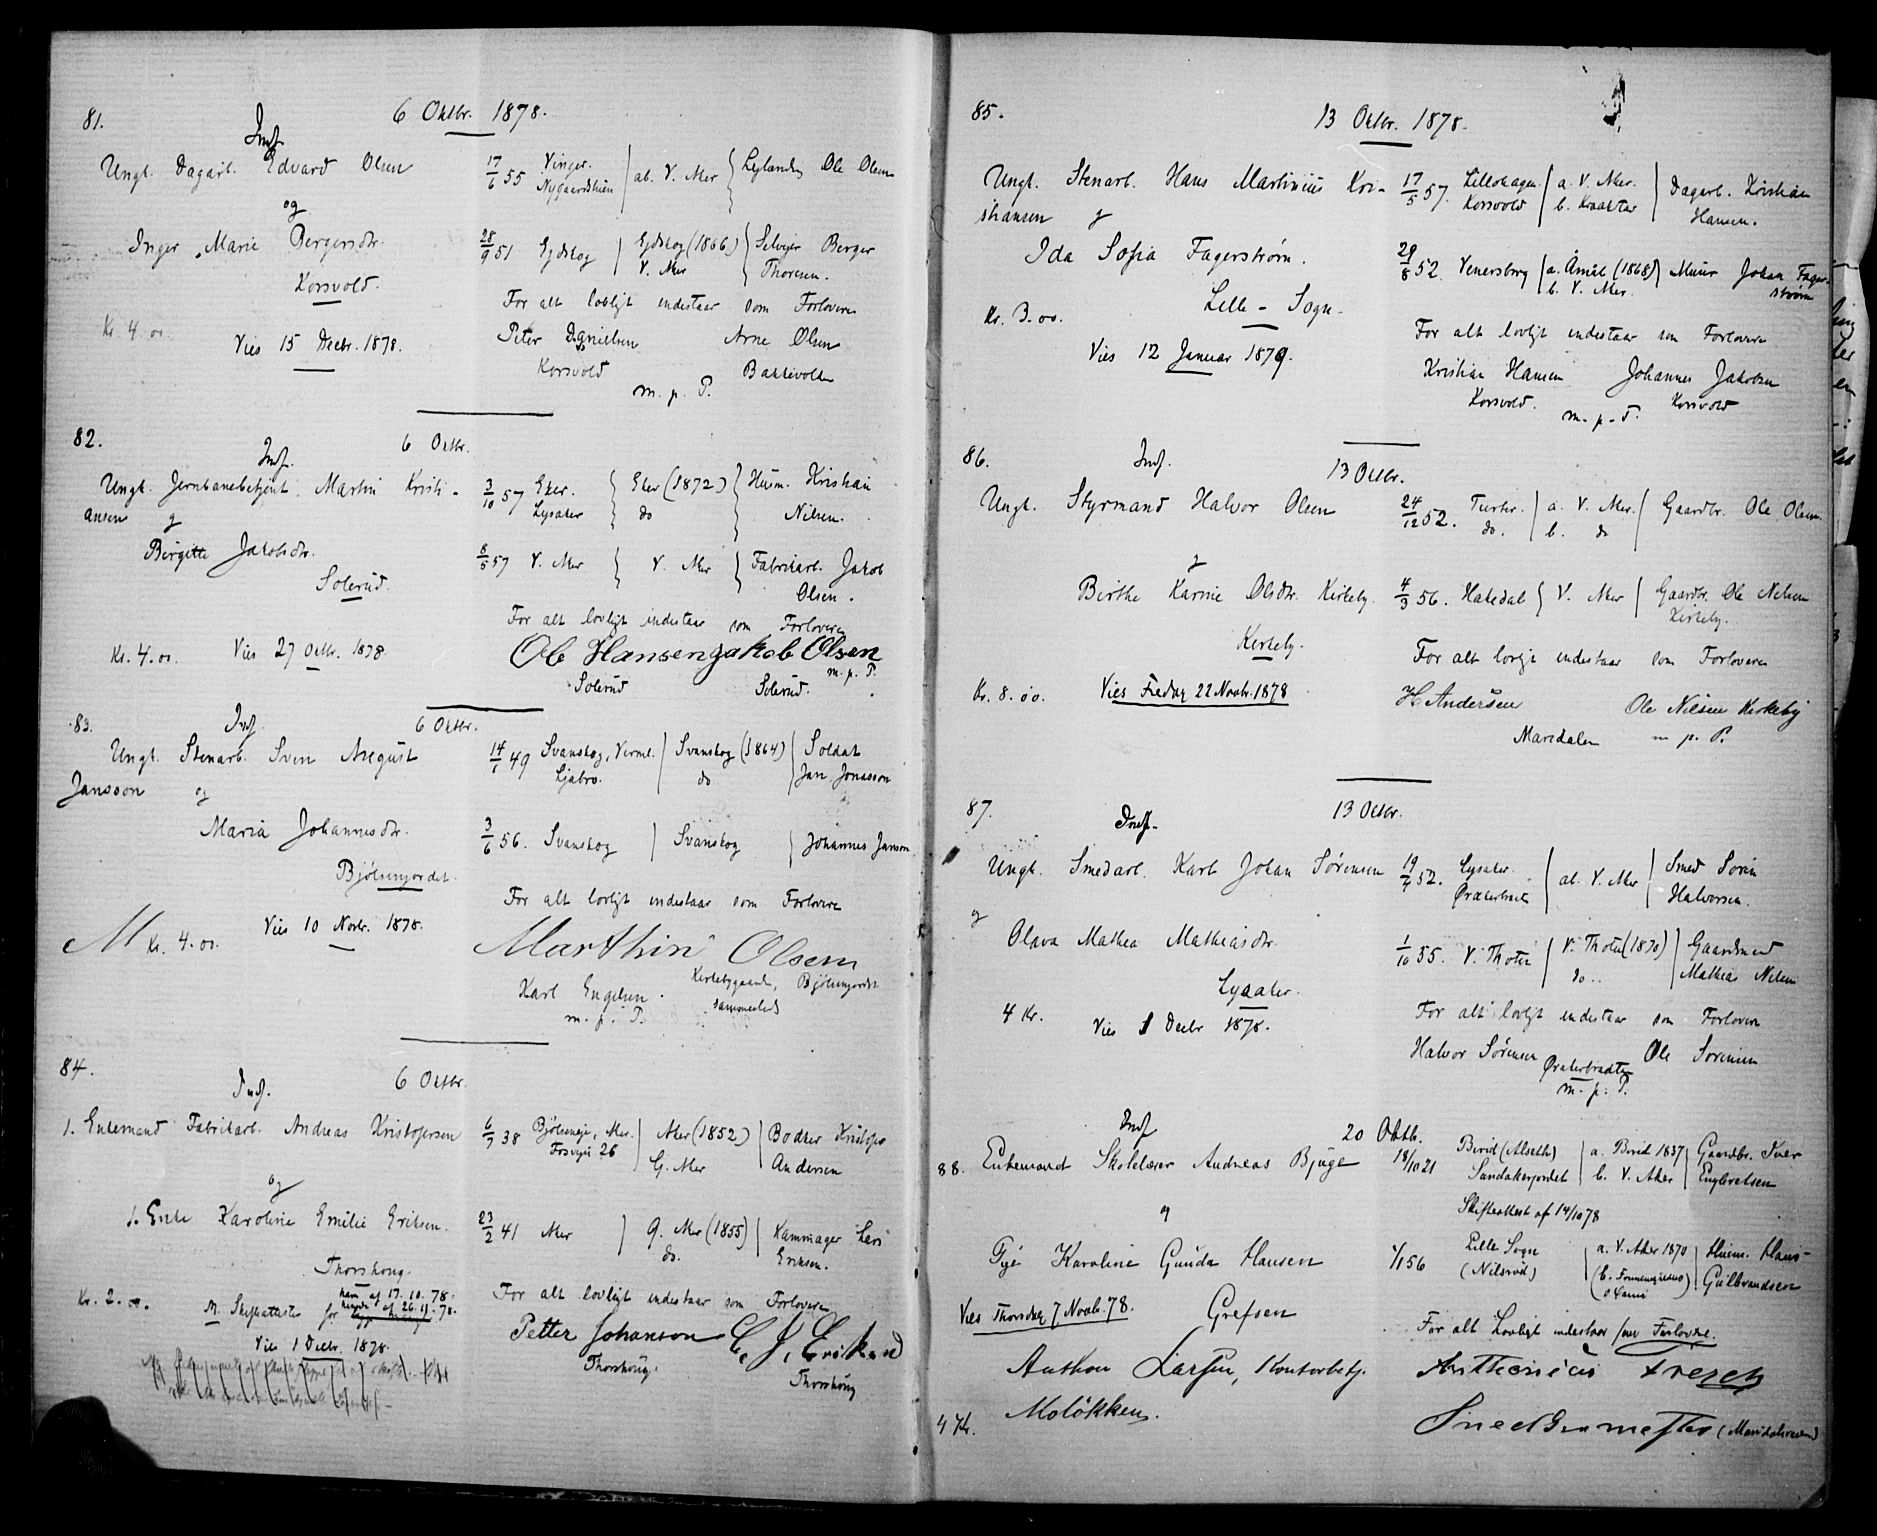 81.
6 Oktbr. 1878.
Indf.
Ungk. Dagarb. Edvard Olsen
17/6 55
Vinger.
ab. V. Aker
Ole Olsen
og
Inger Marie Bergersdr.
28/9 51
Eydskog
Eydskog (1866)
V. Aker
Selveier Berger
Thoresen.
Korsvold.
For alt lovligt indestaar som Forlovere
Kr. 4.00.
Vies 15 Decbr. 1878.
Peter Danielsen
Arne Olsen
Korsvold
Bakkevolden
m. p. P.
82.
Indf.
6 Octbr.
Ungk. Jernbanebetjent Martin Kristi-
ansen og
3/10 57
Eker.
Lysaker
Eker (1872)
do
Husm. Kristian
Nilsen.
Birgitte Jakobsdr.
8/5 57
V. Aker
V. Aker
Fabrikarb. Jakob
Olsen.
Solerud.
For alt lovligt indestaar som Forlovere
Kr. 4.00.
Vies 27 Octbr. 1878.
Ole Hansen Jakob Olsen
m. p. P.
Solerud
Solerud.
83.
Indf.
6 Oktbr.
Ungk. Stenarb. Sven August
Jansson og
14/1 49
Svanskog, Verml.
Ljabro.
Svanskog (1864)
do
Soldat
Jan Jonasson
Maria Johannesdr.
3/6 56.
Svanskog
Svanskog
Johannes Janson
Bjølsenjordet.
For alt lovligt indestaar som Forlovere
M Kr. 4.00.
Vies 10 Novbr. 1878.
Marthin Olsen
Karl Engelsen.
Kirkebygaarden, Bjølsenjordet
sammesteds
m. p. P.
84.
Indf.
6 Octbr.
1. Enkemand Fabrikarb. Andreas Kristofersen
6/7 38
Bjølseneje, Aker.
Fosveien 26
Aker (1852)
G. Aker
Bødker Kristofer
Andersen
og
1. Enke Karoline Emilie Eriksen.
23/2 41
Aker
G. Aker (1855)
do.
Kammager Lars
Eriksen.
Thorshoug.
Kr. 2.00.
M. Skifteattester for
ham af 17.10.78.
hende af 26.11.78.
For alt lovligt indestaar som Forlovere
Vies 1 Decbr. 1878
Petter Johanson C. J. Eriksen
Thorshoug.
Thorshoug
85.
13 Octbr. 1878.
Ungk. Stenarb. Hans Martinius Kri-
stiansen og
17/5 57.
Lilleshagen.
Korsvold
a. V. Aker.
b.
Dagarb. Kristian
Hansen.
Ida Sofia Fagerstrøm.
29/8 52.
Venersborg
a. Åmål (1868)
b. V. Aker.
Murer Johan Fager-
strøm
Lille-Sogn.
Kr. 3.00.
For alt lovligt indestaar som Forlovere
Vies 12 Januar 1879.
Kristian Hansen
Johannes Jakobsen
Korsvold.
Korsvold
m. p. P.
86.
Indf.
13 Octbr.
Ungk. Styrmand Halvor Olsen
24/12 52.
do.
a. V. Aker.
b. do
Gaardbr. Ole Olsen
og
Birthe Karine Olsdtr. Kirkeby.
4/3 56.
Hakedal
V. Aker
Gaardbr. Ole Nilsen
Kirkeby.
Kirkeby.
For alt lovligt indestaar som Forlovere
Kr. 8.00.
Vies Fredag 22 Novbr. 1878
H Andersen
Ole Nilsen Kirkeby
Maridalen
m. p. P.
87.
Indf.
13 Octbr.
Ungk. Smedarb. Karl Johan Sørensen
19/4 52.
Lysaker.
ab. V. Aker
Smed Søren
Halvorsen.
og
Olava Mathea Mathiasdr.
1/10 55.
V. Thoten
V. Thoten (1870)
do..
Gaardmand
Mathias Nilsen
Lysaker.
4 Kr.
Vies 1 Decbr 1878.
For alt lovligt indestaar som Forlovere
Halvor Sørensen
Ole Sørensen
Ørakerbradten
m. p. P.
Indf
20 Oktb.
88. Enkemand Skolelærer Andreas Bjuge
18/10 21
Birid (Alseth)
Sandakerjordet
a. Birid 1837
b. V. Aker
Gaardbr. Iver
Engbretsen
Skifteattest af 14/10 78
og
Pige Karoline Gunda Hansen
1/1 56
Lille Sogn
(Nilsrud)
a. V. Aker 1870
Husm. Hans
Gulbrandsen
Vies Thorsdag 7 Novbr. 78.
Grefsen
For alt Lovligt indestaar som Forlovere.
Anthon Larsen, Kontorbetj.
Anthonius Fresch
Moløkken.
4 Kr.
Snedkermester (Maridalsveien)